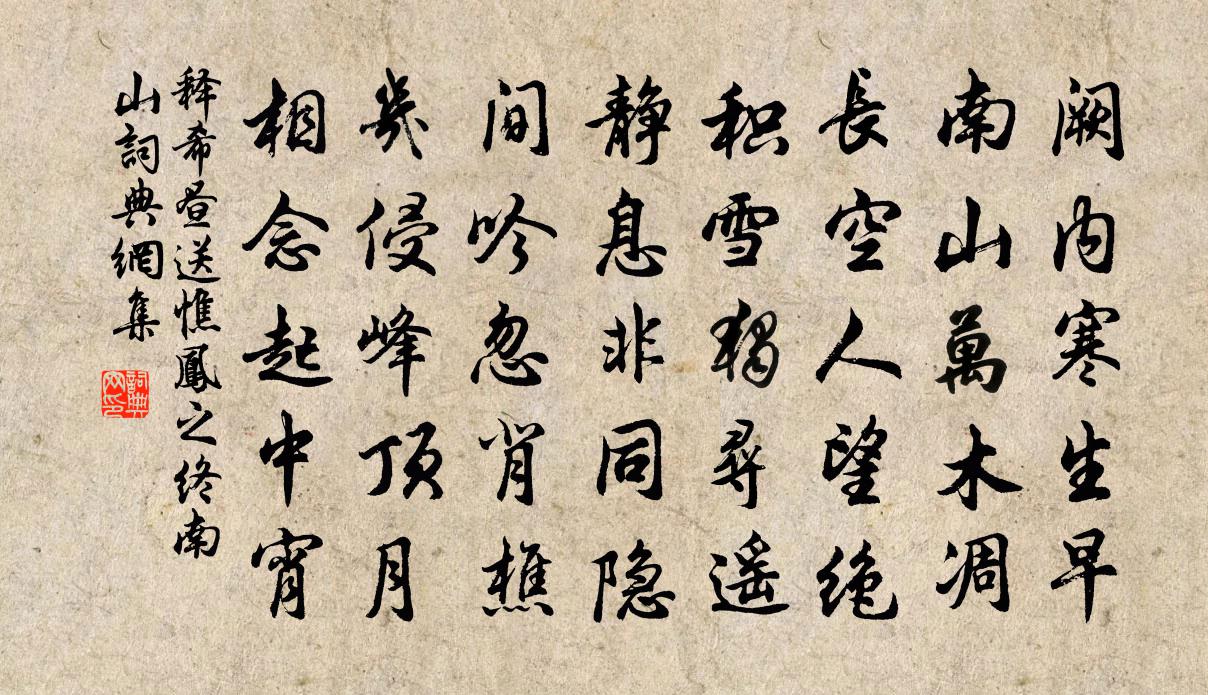 阙内寒生早
南山萬木凋
長空人望绝
积雪独尋遥
静息非同隐
间吟忽肖樵
幾侵峰顶月
相念起中宵
释希昼送惟鳳之终南
山詞典網集
詞典
网印